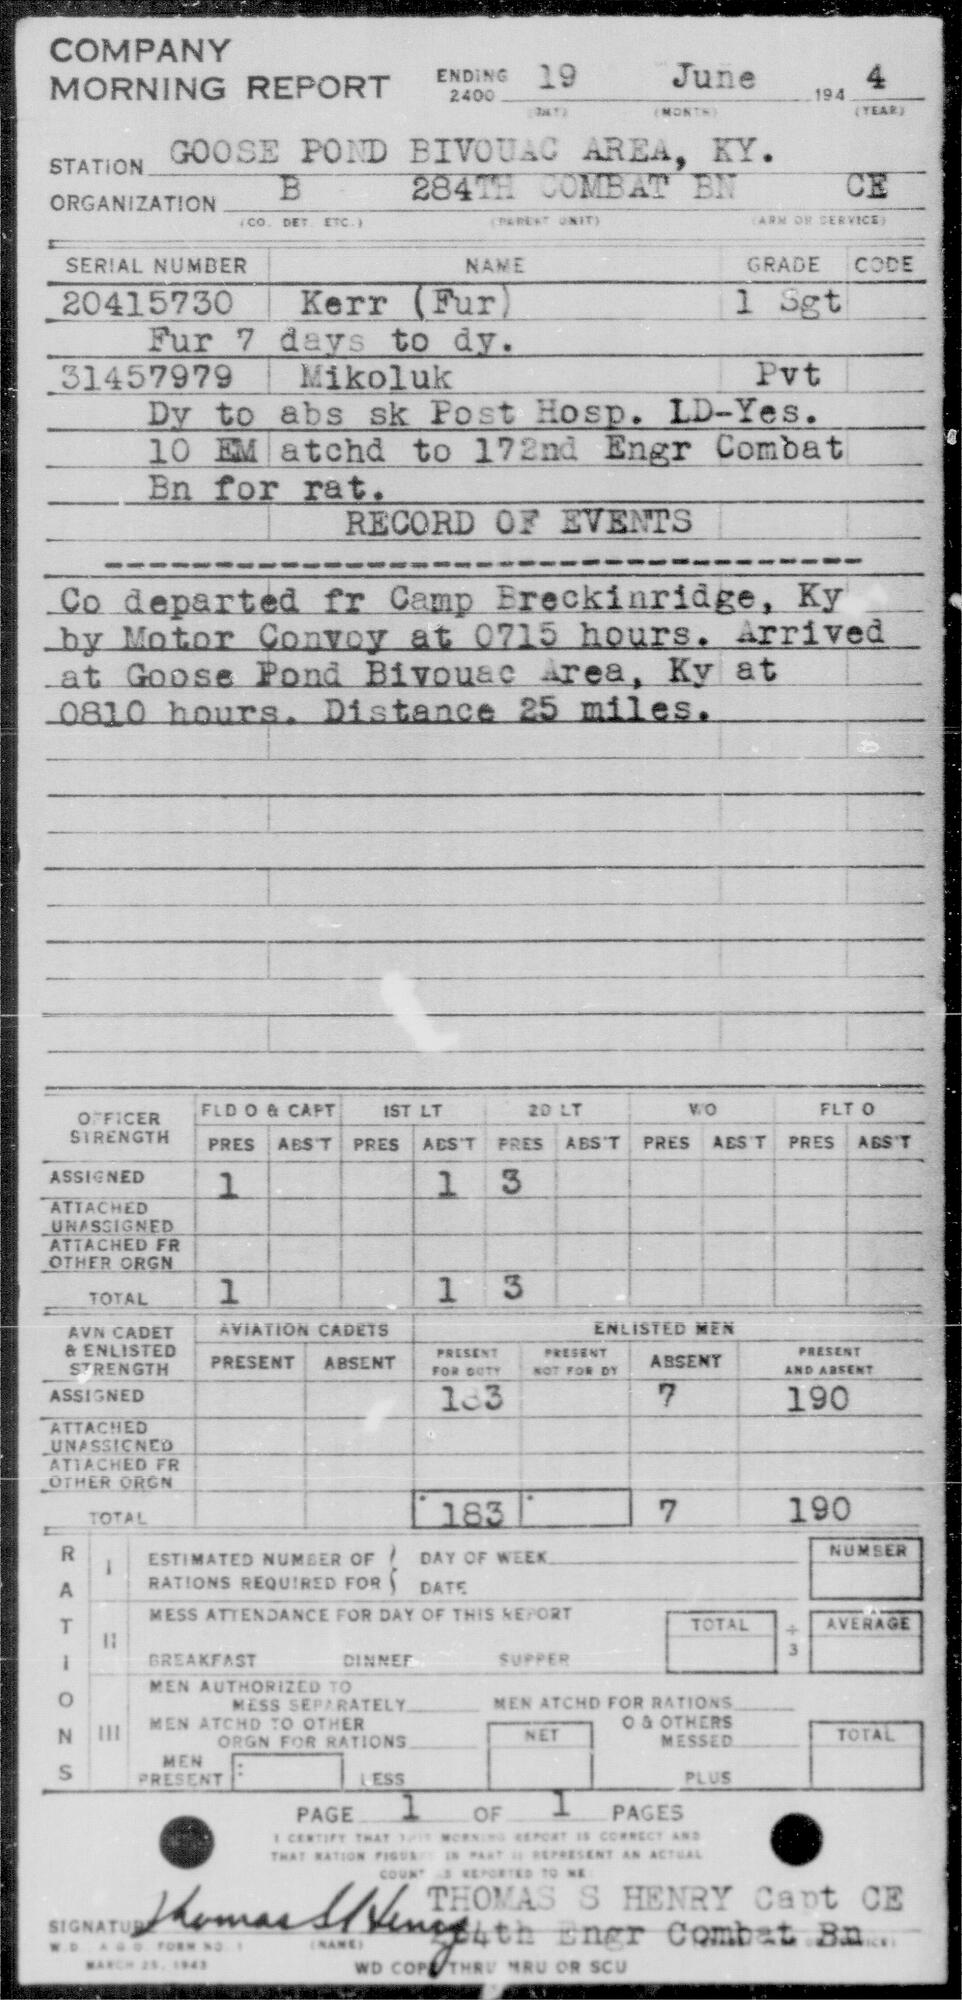 COMPANY
MORNING REPORT ENDING 2400 19 June 194 4
(DAY) (MONTH) (YEAR)
STATION GOOSE POND BIVOUAC AREA, KY.
ORGANIZATION B 284TH COMBAT BN CE
(CO. DET. ETC.) (PARENT UNIT) (ARM OR SERVICE)
SERIAL NUMBER NAME GRADE CODE
20415730 Kerr (Fur) 1 Sgt
Fur 7 days to dy.
31457979 Mikoluk Pvt
Dy to abs sk Post Hosp. LD-Yes.
10 EM atchd to 172nd Engr Combat
Bn for rat.
RECORD OF EVENTS
Co departed fr Camp Breckinridge, Ky
by Motor Convoy at 0715 hours. Arrived
at Goose Pond Bivouac Area, Ky at
0810 hours. Distance 25 miles.
OFFICER STRENGTH FLD O & CAPT 1ST LT 2D LT W O FLT O
PRES ABS'T PRES ABS'T PRES ABS'T PRES ABS'T PRES ABS'T
ASSIGNED 1 1 3
ATTACHED UNASSIGNED
ATTACHED FR OTHER ORGN
TOTAL 1 1 3
AVN CADET & ENLISTED STRENGTH AVIATION CADETS ENLISTED MEN
PRESENT ABSENT PRESENT FOR DUTY PRESENT NOT FOR DY ABSENT PRESENT AND ABSENT
ASSIGNED 183 7 190
ATTACHED UNASSIGNED
ATTACHED FR OTHER ORGN
TOTAL 183 7 190
RATIONS
I ESTIMATED NUMBER OF RATIONS REQUIRED FOR DAY OF WEEK DATE NUMBER
II MESS ATTENDANCE FOR DAY OF THIS REPORT TOTAL ÷ 3 AVERAGE
BREAKFAST DINNER SUPPER
III MEN AUTHORIZED TO MESS SEPARATELY MEN ATCHD FOR RATIONS
MEN ATCHD TO OTHER ORGN FOR RATIONS NET O & OTHERS MESSED TOTAL
MEN PRESENT LESS PLUS
PAGE 1 OF 1 PAGES
I CERTIFY THAT THIS MORNING REPORT IS CORRECT AND
THAT RATION FIGURES IN PART II REPRESENT AN ACTUAL
COUNT AS REPORTED TO ME:
THOMAS S HENRY Capt CE
SIGNATURE Thomas S Henry 284th Engr Combat Bn
W.D. A.G.O. FORM NO. 1 (NAME)
MARCH 25, 1943 WD COPY THRU MRU OR SCU